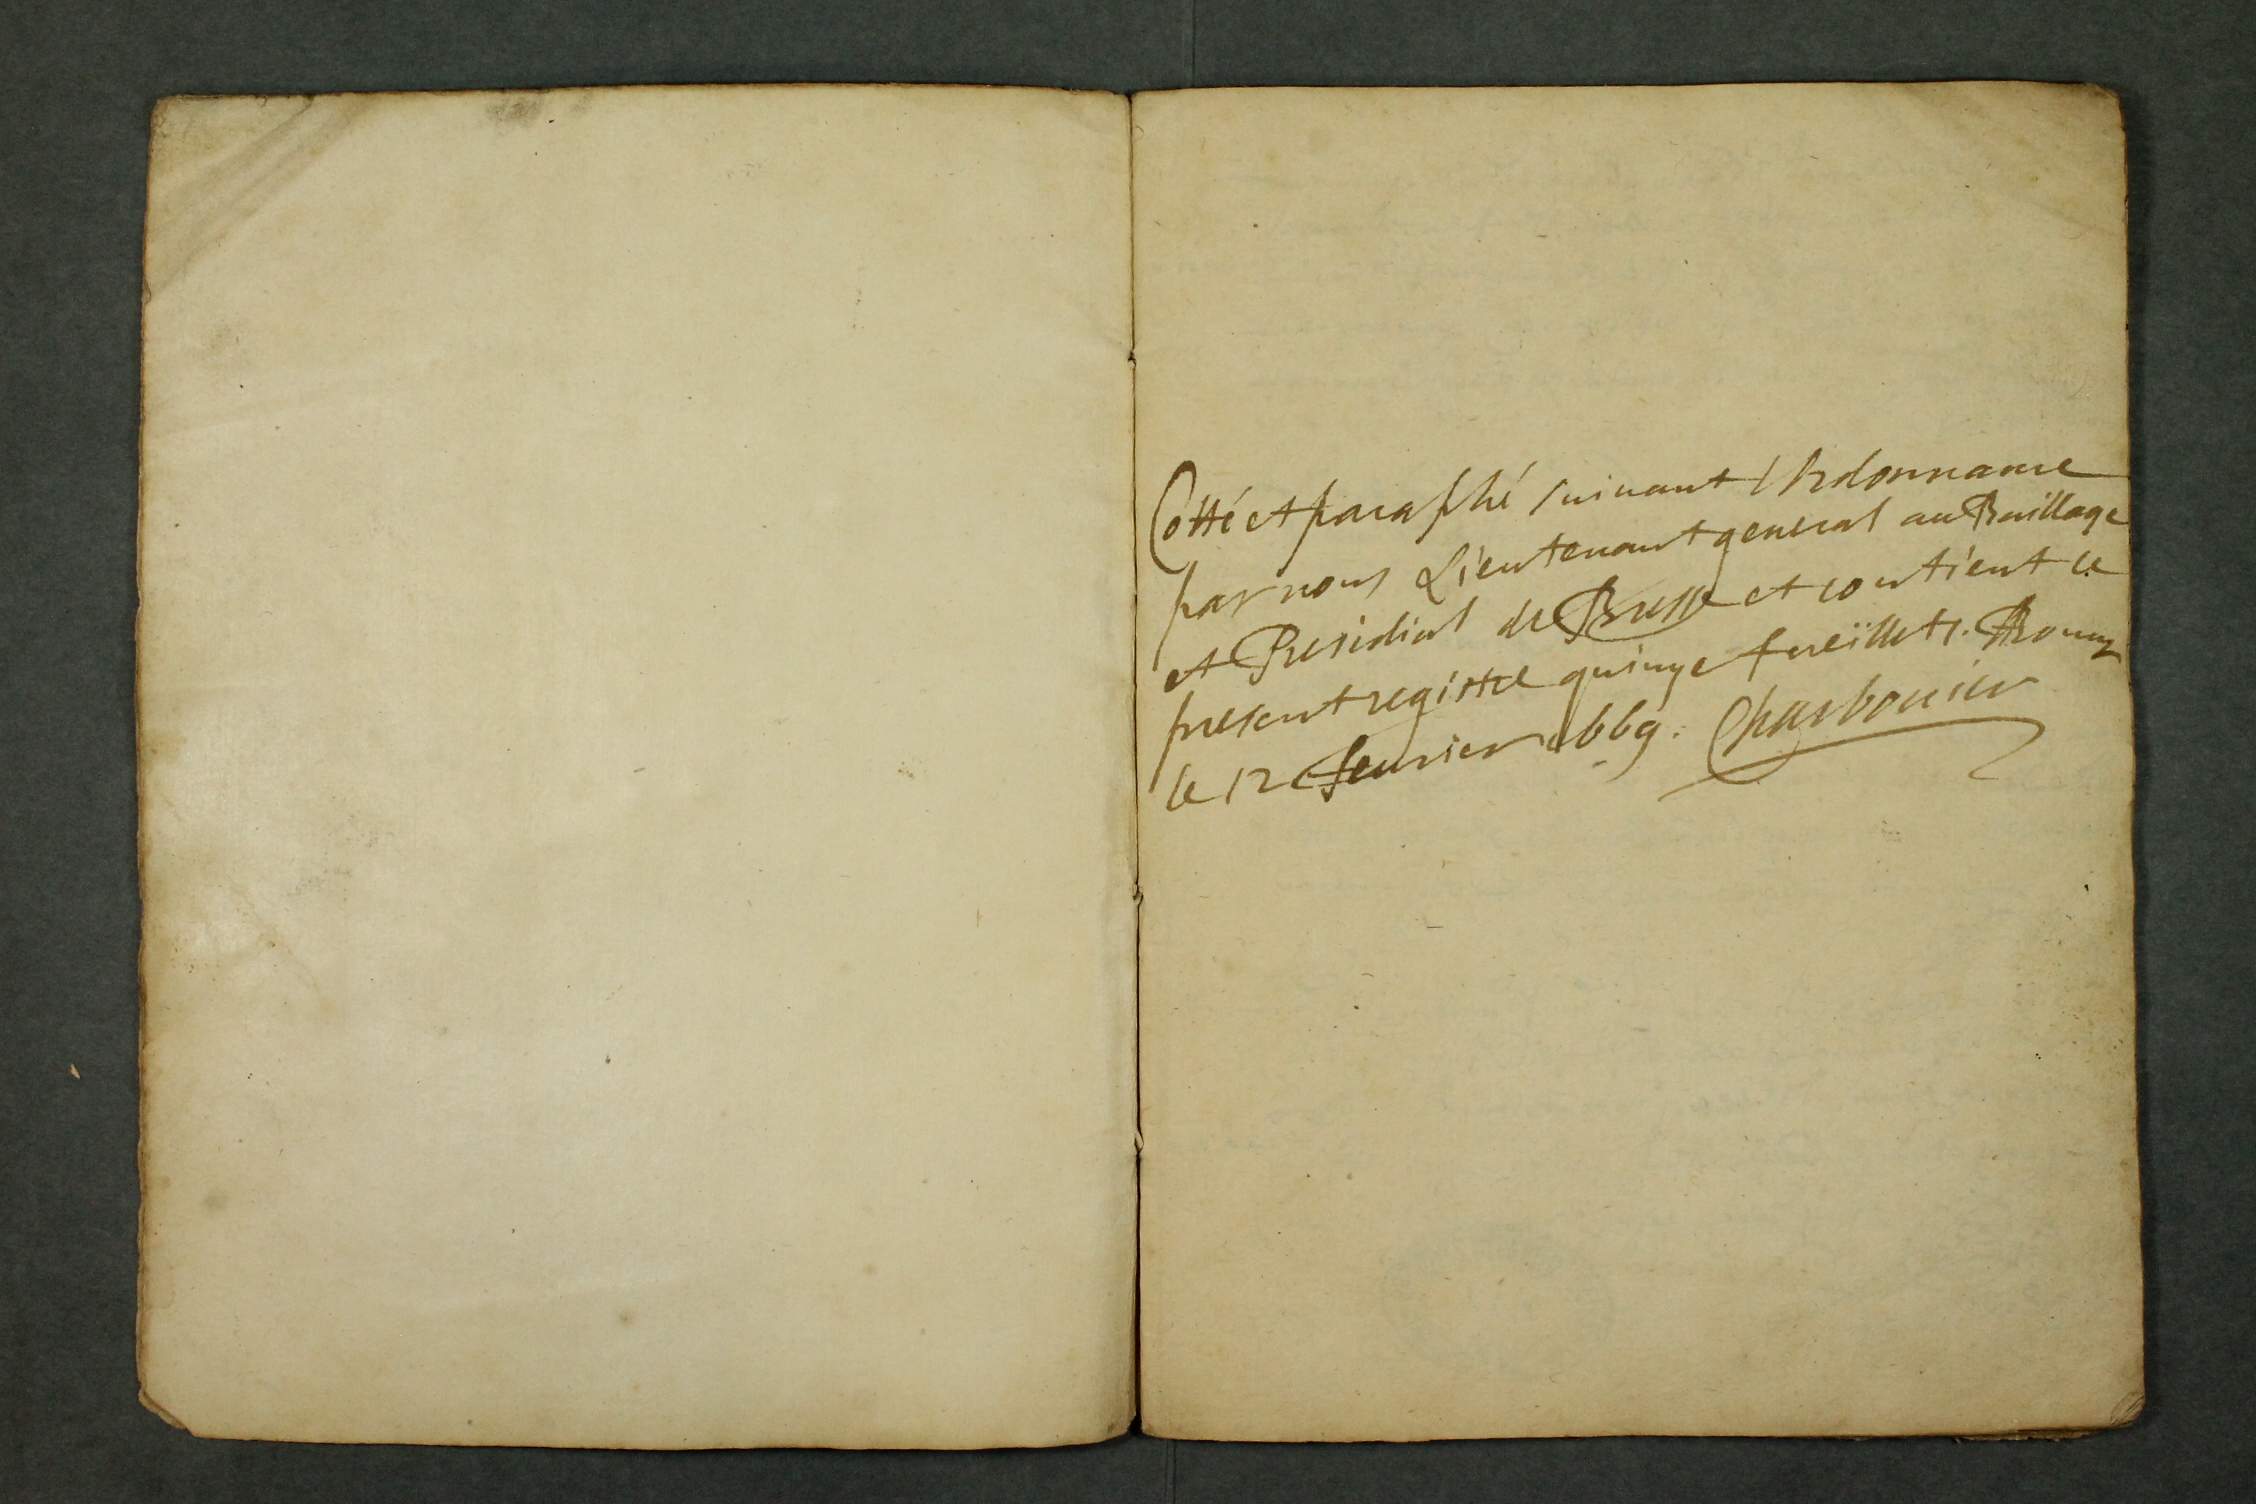 Cotté et paraphé suivant l'Ordonnance
par nous Lieutenant general au Baillage
et Presidial de Bresse et contient le
present registre quinze feuïllets. A Bourg
le 12 feurier 1669. Charbonier